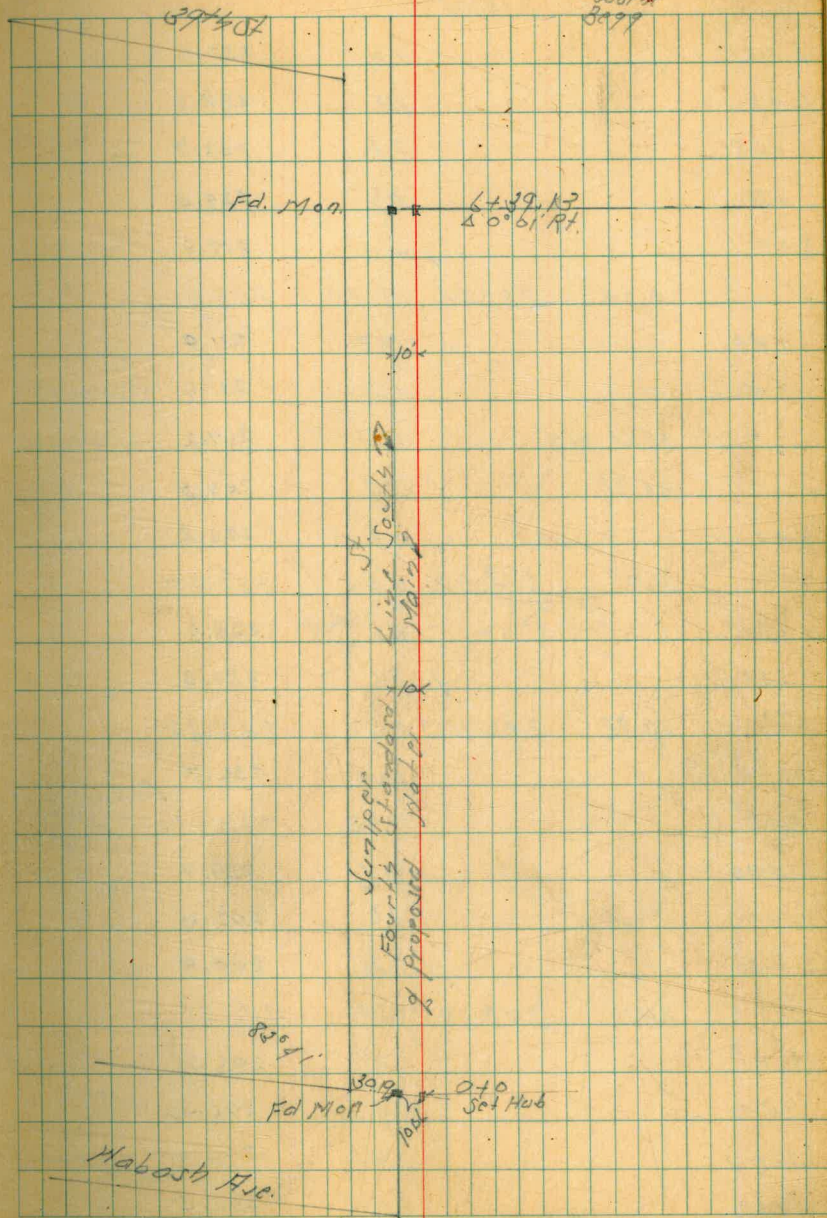 39+40±
3099
Fd. Mon.
6+39.13
Δ 0°01' Rt.
10'
Juniper St.
Fourth Standard Line South
¢ Proposed Water Main
10
83°41'
30.0
0+0
Fd Mon
Set Hub
10.0
Wabash Ave.